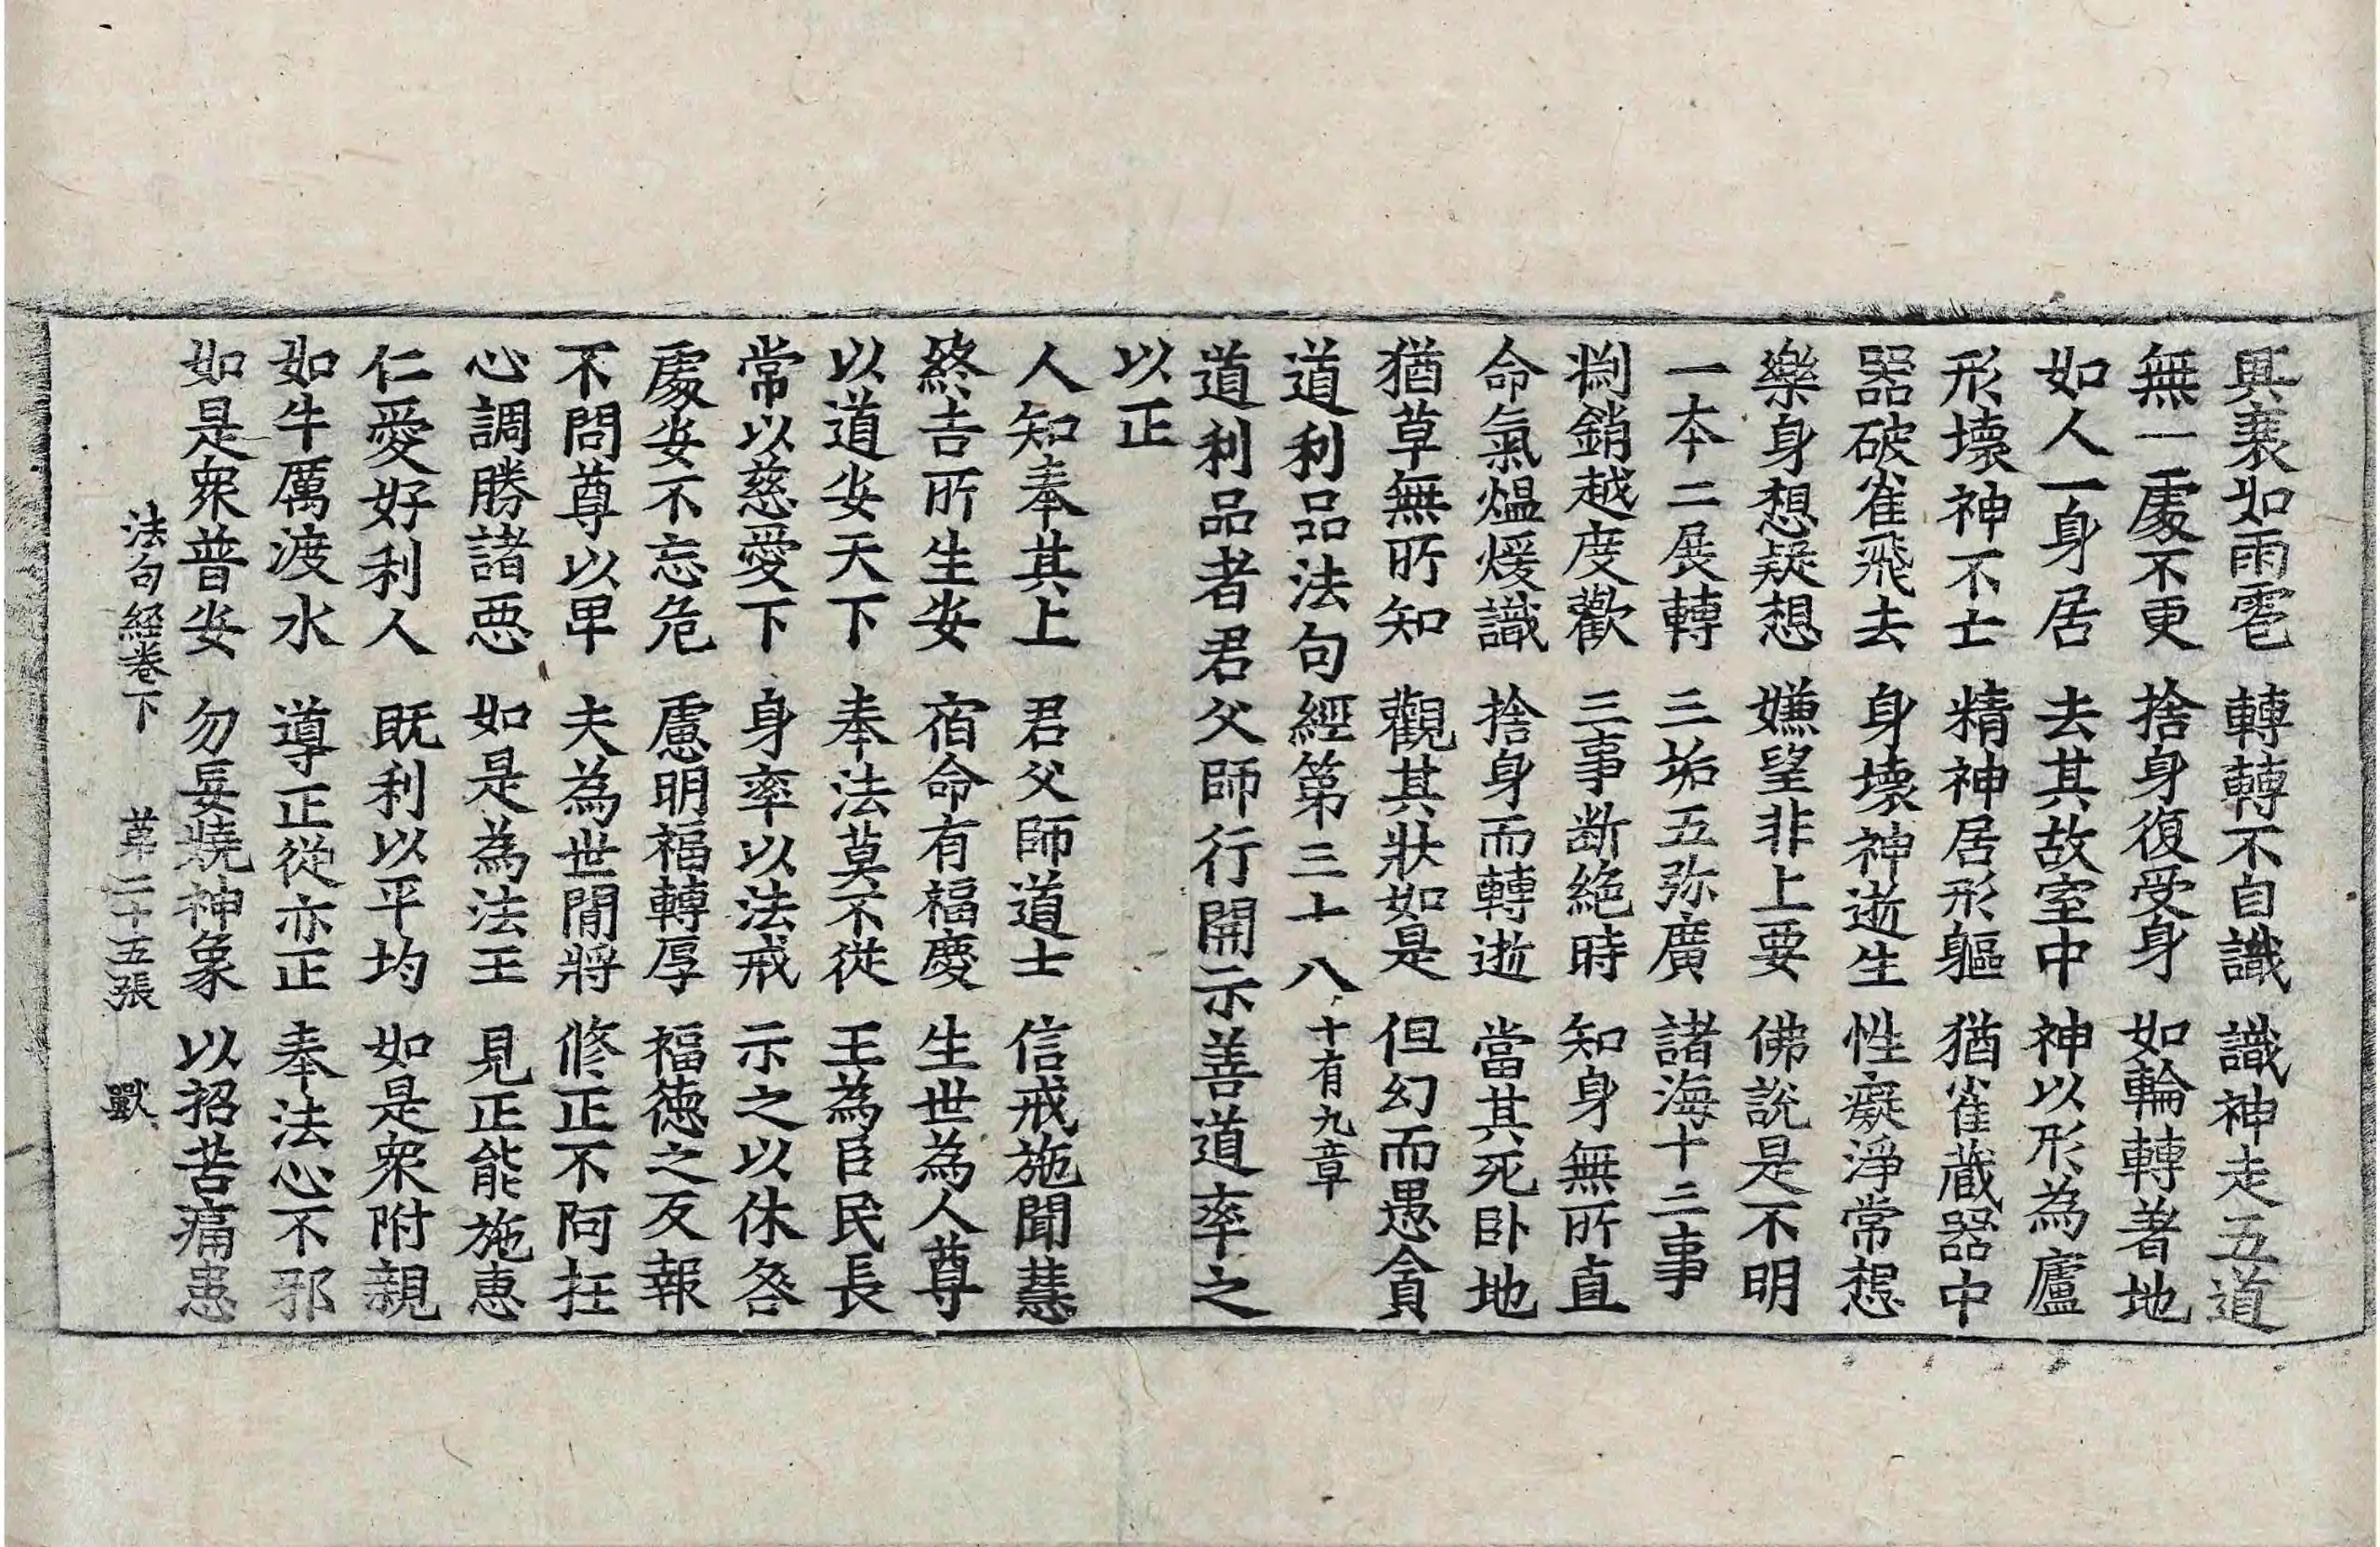 興衰如雨雹 轉轉不自識 識神走五道
無一處不更 捨身復受身 如輪轉著地
如人一身居 去其故室中 神以形為廬
形壞神不亡 精神居形軀 猶雀藏器中
器破雀飛去 身壞神逝生 性癡淨常想
樂身想疑想 嫌望非上要 佛說是不明
一本二展轉 三垢五弥廣 諸海十三事
淵銷越度歡 三事断絶時 知身無所直
命氣熅煖識 捨身而轉逝 當其死卧地
猶草無所知 觀其狀如是 但幻而愚貪
道利品法句經第三十八 十有九章
道利品者君父師行開示善道率之
以正
人知奉其上 君父師道士 信戒施聞慧
終吉所生安 宿命有福慶 生世為人尊
以道安天下 奉法莫不從 王為臣民長
常以慈愛下 身率以法戒 示之以休咎
處安不忘危 慮明福轉厚 福德之反報
不問尊以卑 夫為世間將 修正不阿抂
心調勝諸惡 如是為法王 見正能施惠
仁愛好利人 既利以平均 如是衆附親
如牛厲渡水 導正從亦正 奉法心不邪
如是衆普安 勿妄嬈神象 以招苦痛患
法句經卷下 第二十五張 獸